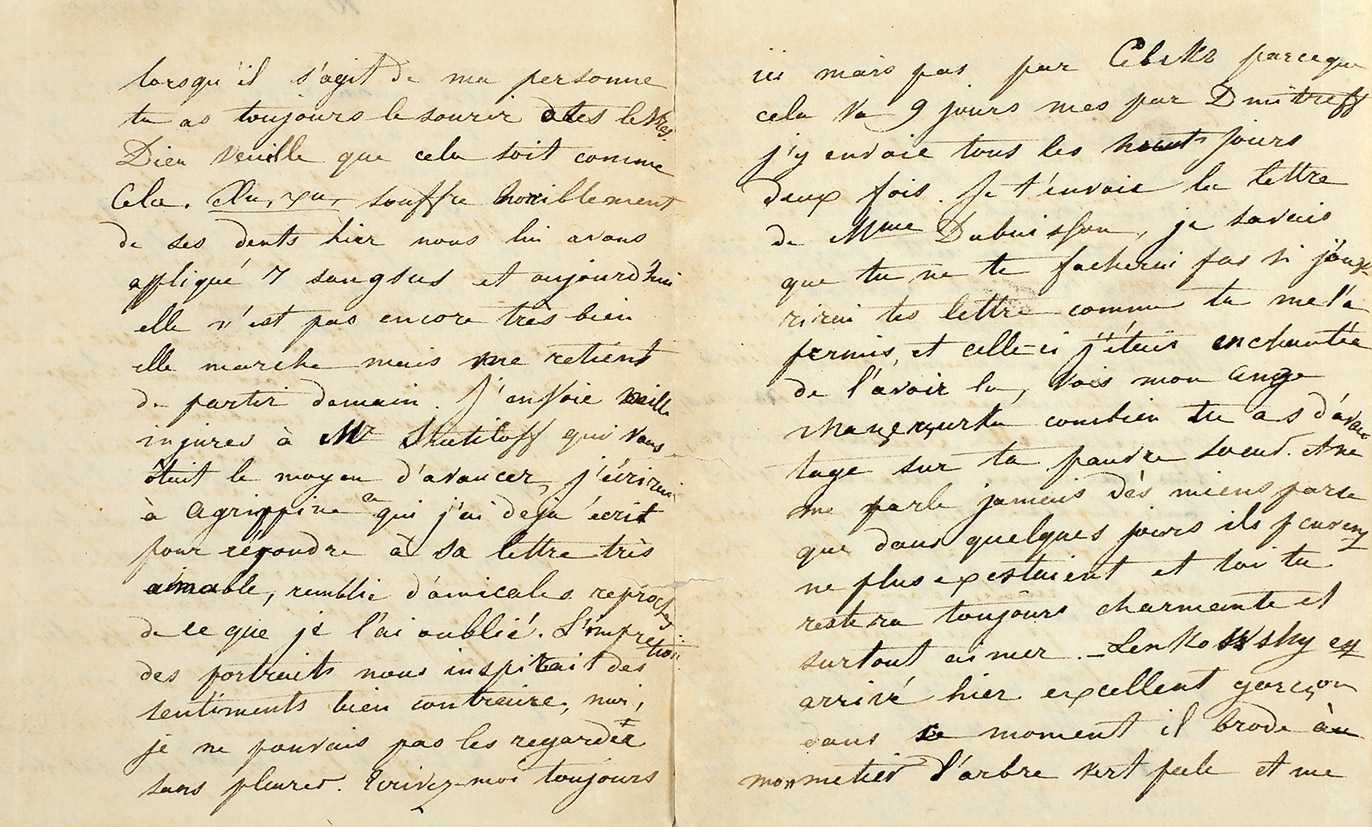 lorsqu'il s'agit de ma personne
tu as toujours le sourir dtes levres
Dieu veuille que cela soit comme
Cela. souffre horriblement
de ses dents hier nous lui avons
appliqué 7 sangsus et aujourd'hui
elle n'est pas encore très bien
elle marche mais me retient
de partir demain. J'envoie mille
injures à Mr qui vous
ôtait le moyen d'avancer, j'écrirai
à Agrippine qui j'ai déja écrit
pour répondre à sa lettre très
aimable, remblie d'amicales reproches
de ce que je l'ai oublié. L'impretion
des portraits nous inspirait des
sentiments bien contraire, moi,
je ne pouvais pas les regarder
sans pleurer. Ecrivez-moi toujours
ici mais pas par parceque
cela va 9 jours mes par Dmitreff
j'y envoie tous les jours
deux fois. Je t'envoie la lettre
de Mme Dubuisson, je savais
que tu ne te facherai pas si j'ouv-
rirai tes lettre comme tu me l'a
permis, et celle-ci j'étais enchantée
de l'avoir lu, vois mon ange
combien tu as d'avan
tage sur ta pauvre soeur. A ne
me parle jamais dès miens parse
que dans quelques jours ils peuvent
ne plus expestaient et toi tu
restera toujours charmante et
surtout aimer. - Lenkowsky est
arrivé hier excellent garçon
dans ce moment il brode àu
mon metier l'arbre vert et me